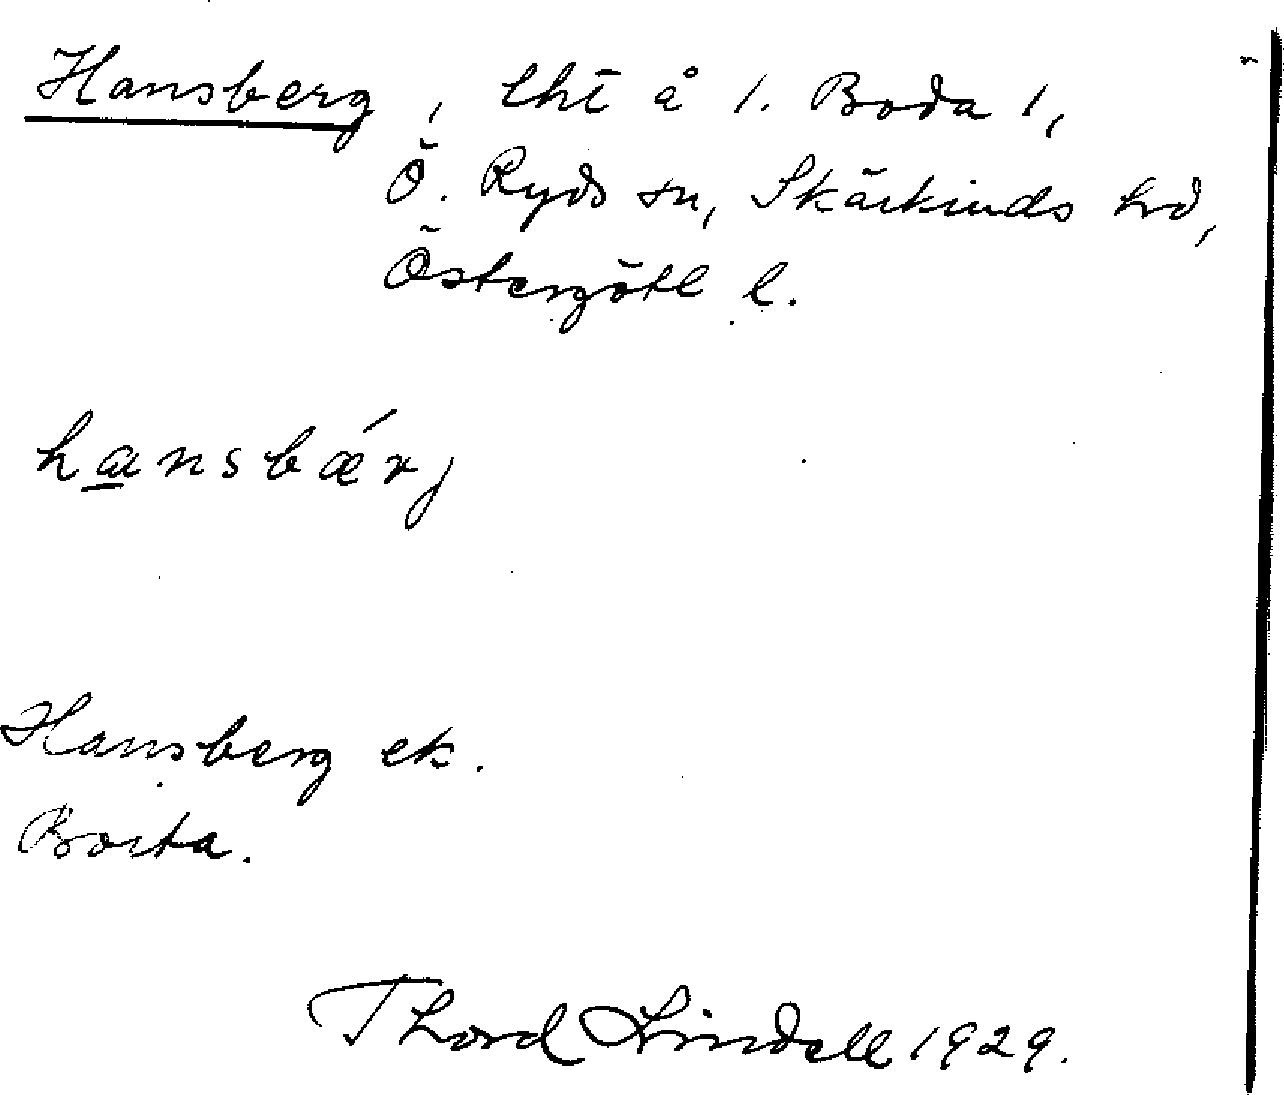 Hansberg, lht å 1. Boda 1,
Ö. Ryds sn, Skärkinds hd,
Östergötl l.
hansbǽrj
Hansberg ek.
Borta.
Thord Lindell 1929.